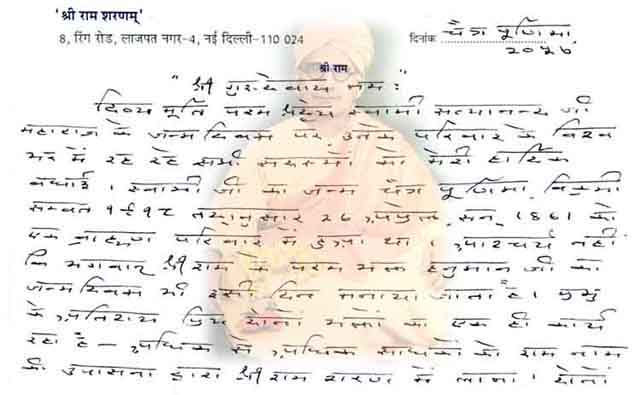 'श्री राम शरणम्'
8, रिंग रोड, लाजपत नगर-4, नई दिल्ली-110 024
दिनांक चैत्र पूर्णिमा
श्री राम
"श्री गुरुदेवाय नमः"
दिव्य मूर्ति परम श्रद्धेय स्वामी सत्यानन्द जी
महाराज के जन्म दिवस पर उनके परिवार के विश्व
भर में रह रहे सभी सदस्यों को मेरी हार्दिक
बधाई। स्वामी जी का जन्म चैत्र पूर्णिमा विक्रमी
सम्वत १९१८ तदानुसार २६ अप्रैल सन् 1861 को
एक ब्राह्मण परिवार में हुआ था। आश्चर्य नहीं
कि भगवान् श्री राम के परम भक्त हनुमान जी का
जन्म दिवस भी इसी दिन मनाया जाता है। प्रभु
के अतिशय प्रिय दोनों भक्तों का एक ही कार्य
रहा है – अधिक से अधिक साधकों को राम नाम
की उपासना द्वारा श्री राम शरण में लाना। दोनों